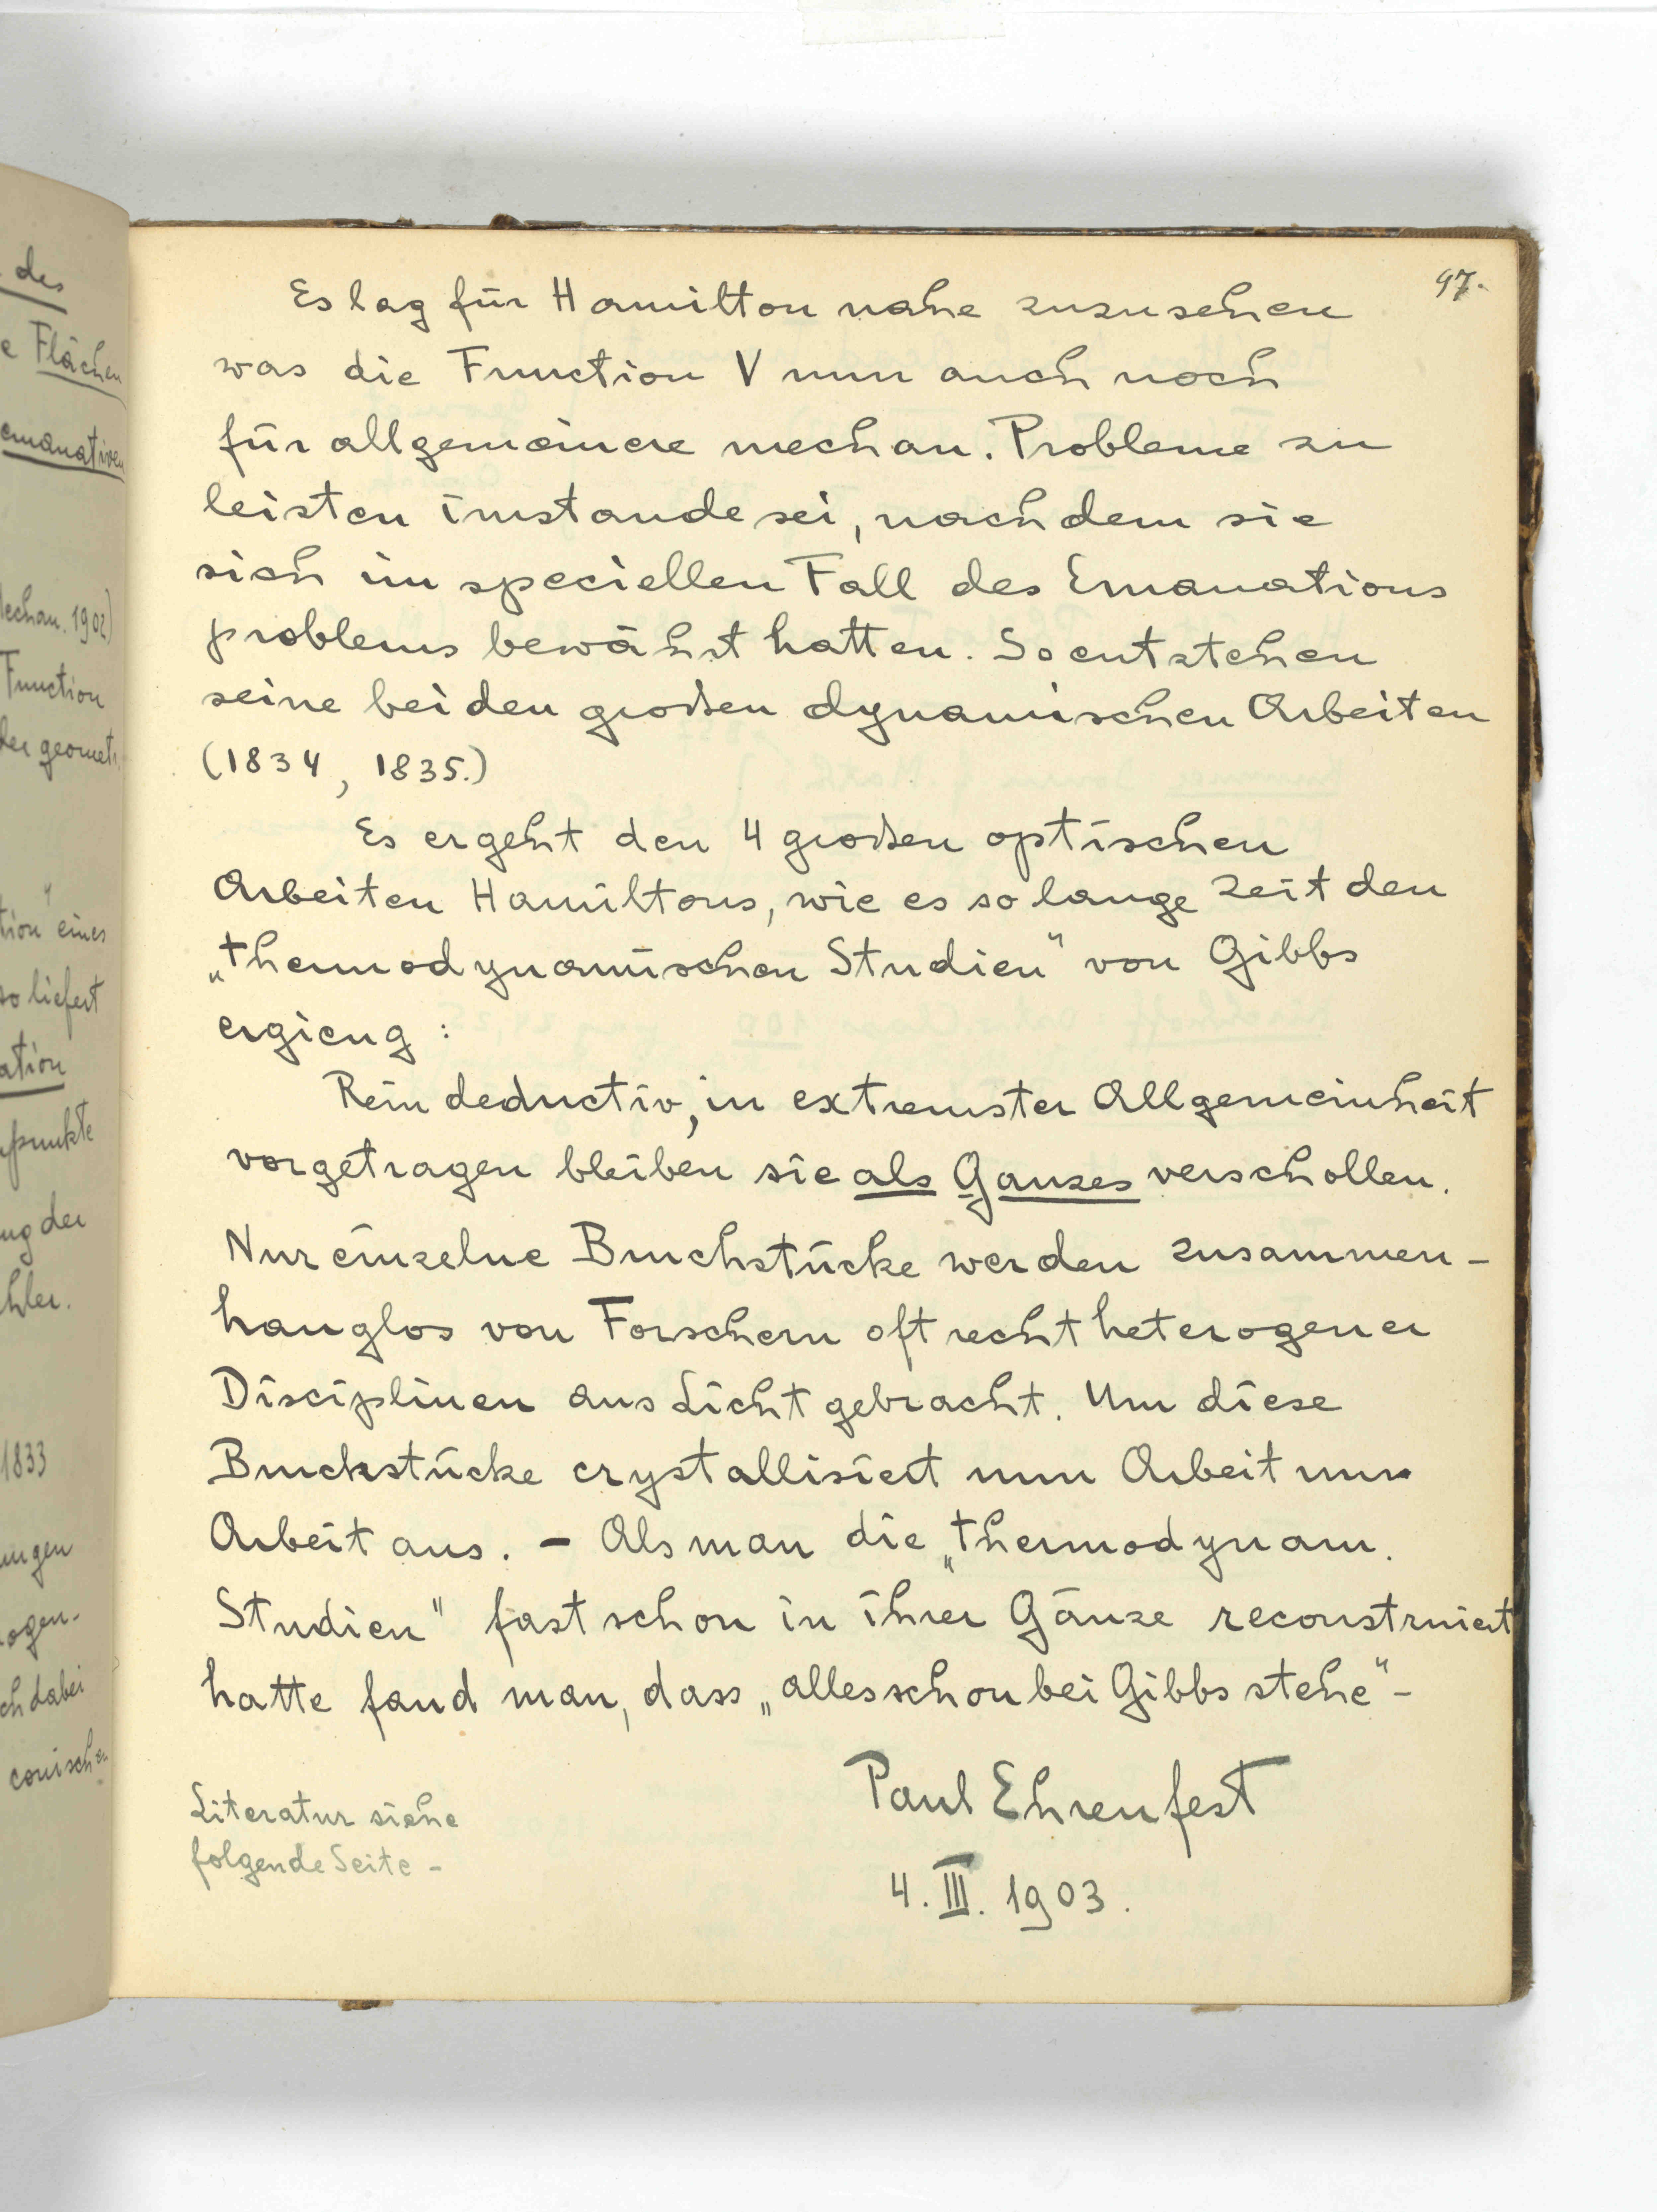 des
e Flächen
emanativen
Mechan. 1902)
Function
der geomet.
tion" eines
so liefert
ation
punkte
ng der
hler.
1833
ungen
ogen-
ch dabei
conische
97.
Es lag für Hamilton nahe zuzusehen
was die Function V nun auch noch
für allgemeinere mechan. Probleme zu
leisten imstande sei, nachdem sie
sich im speciellen Fall des Emanations
problems bewährt hatten. So entstehen
seine beiden großen dynamischen Arbeiten
(1834, 1835.)
Es ergeht den 4 großen optischen
Arbeiten Hamiltons, wie es so lange Zeit den
„thermodynamischen Studien" von Gibbs
ergieng:
Rein deductiv, in extremster Allgemeinheit
vorgetragen bleiben sie als Ganzes verschollen.
Nur einzelne Bruchstücke werden zusammen-
hanglos von Forschern oft recht heterogener
Disciplinen ans Licht gebracht. Um diese
Bruchstücke crystallisiert nun Arbeit um
Arbeit aus. - Als man die „thermodynam.
Studien" fast schon in ihrer Gänze reconstruiert
hatte fand man, dass „alles schon bei Gibbs stehe" -
Paul Ehrenfest
4. III. 1903.
Literatur siehe
folgende Seite -